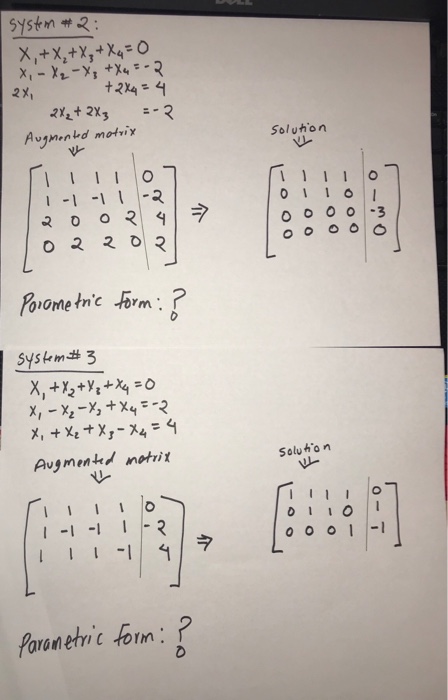 System #2:
X₁+X₂+X₃+X₄=0
X₁-X₂-X₃+X₄=-2
2X₁ +2X₄=4
2X₂+2X₃ =-2
Augmented matrix
⇓
1 1 1 1 | 0
1 -1 -1 1 | -2
2 0 0 2 | 4
0 2 2 0 | 2
⇒
Solution
⇓
1 1 1 1 | 0
0 1 1 0 | 1
0 0 0 0 | -3
0 0 0 0 | 0
Parametric form: ?
System #3
X₁+X₂+X₃+X₄=0
X₁-X₂-X₃+X₄=-2
X₁+X₂+X₃-X₄=4
Augmented matrix
⇓
1 1 1 1 | 0
1 -1 -1 1 | -2
1 1 1 -1 | 4
⇒
Solution
⇓
1 1 1 1 | 0
0 1 1 0 | 1
0 0 0 1 | -1
Parametric form: ?